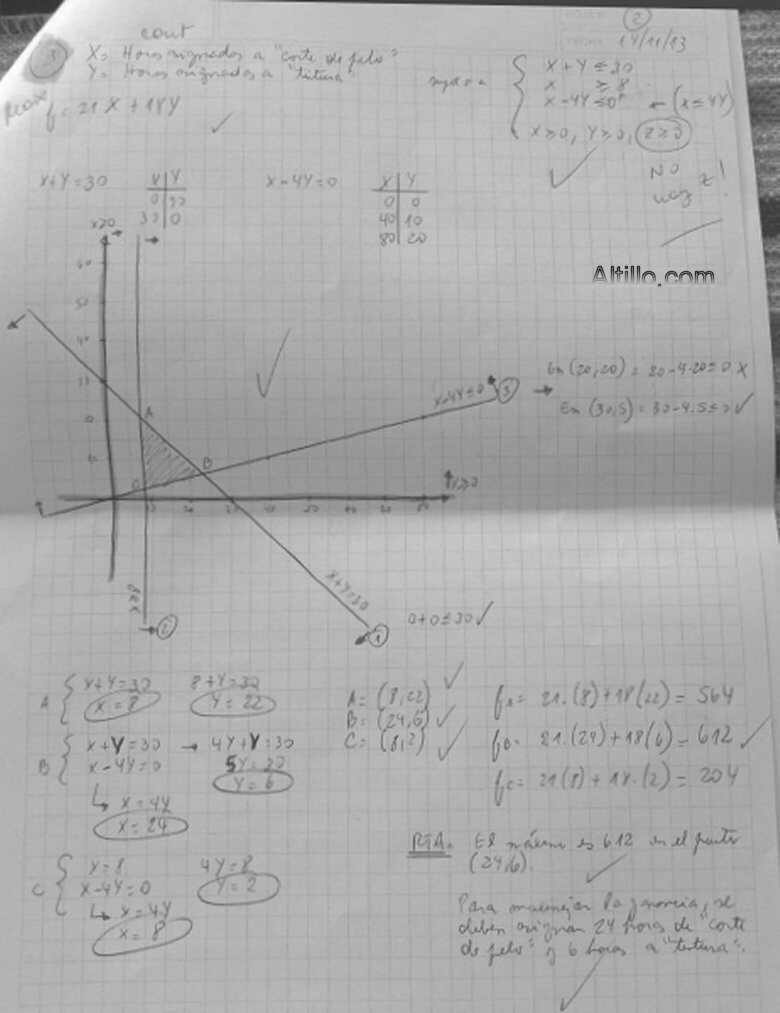 2
14/11/13
cont
3
X= Horas asignadas a "corte de pelo"
Y= Horas asignadas a "tintura"
Max f=21X+18Y
sujeto a
X+Y≤30
X ≥8
X-4Y≤0 ← (X≤4Y)
X≥0, Y≥0, Z≥0
NO
way z!
X+Y=30
X|Y
0|30
30|0
X-4Y=0
X|Y
0|0
40|10
80|20
Altillo.com
X≥0
A
B
C
X-4Y≤0
3
En (20,20) = 20-4.20≤0 X
En (30,5) = 30-4.5≤0 ✓
Y≥0
X≥8
2
X+Y=30
1
0+0≤30 ✓
A { X+Y=30 8+Y=30
X=8 Y=22
B { X+Y=30 → 4Y+Y=30
X-4Y=0 5Y=30
Y=6
↳ X=4Y
X=24
C { X=8 4Y=8
X-4Y=0 Y=2
↳ X=4Y
X=8
A= (8,22)
B= (24,6)
C= (8,2)
fA= 21.(8)+18(22)= 564
fB= 21.(24)+18(6)= 612
fC= 21(8)+18.(2)= 204
RTA: El máximo es 612 en el punto
(24,6).
Para maximizar la ganancia, se
deben asignar 24 horas de "corte
de pelo" y 6 horas a "tintura".